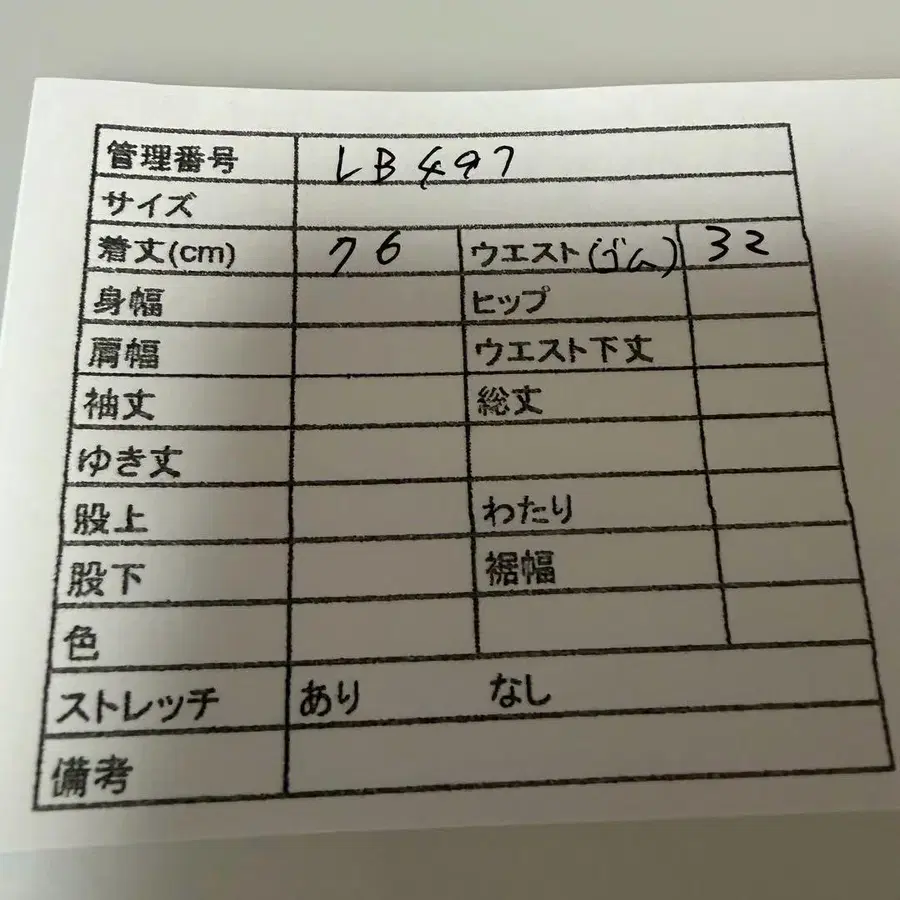 管理番号 LB497
サイズ
着丈(cm) 76 ウエスト(ゴム) 32
身幅 ヒップ
肩幅 ウエスト下丈
袖丈 総丈
ゆき丈
股上 わたり
股下 裾幅
色
ストレッチ あり なし
備考